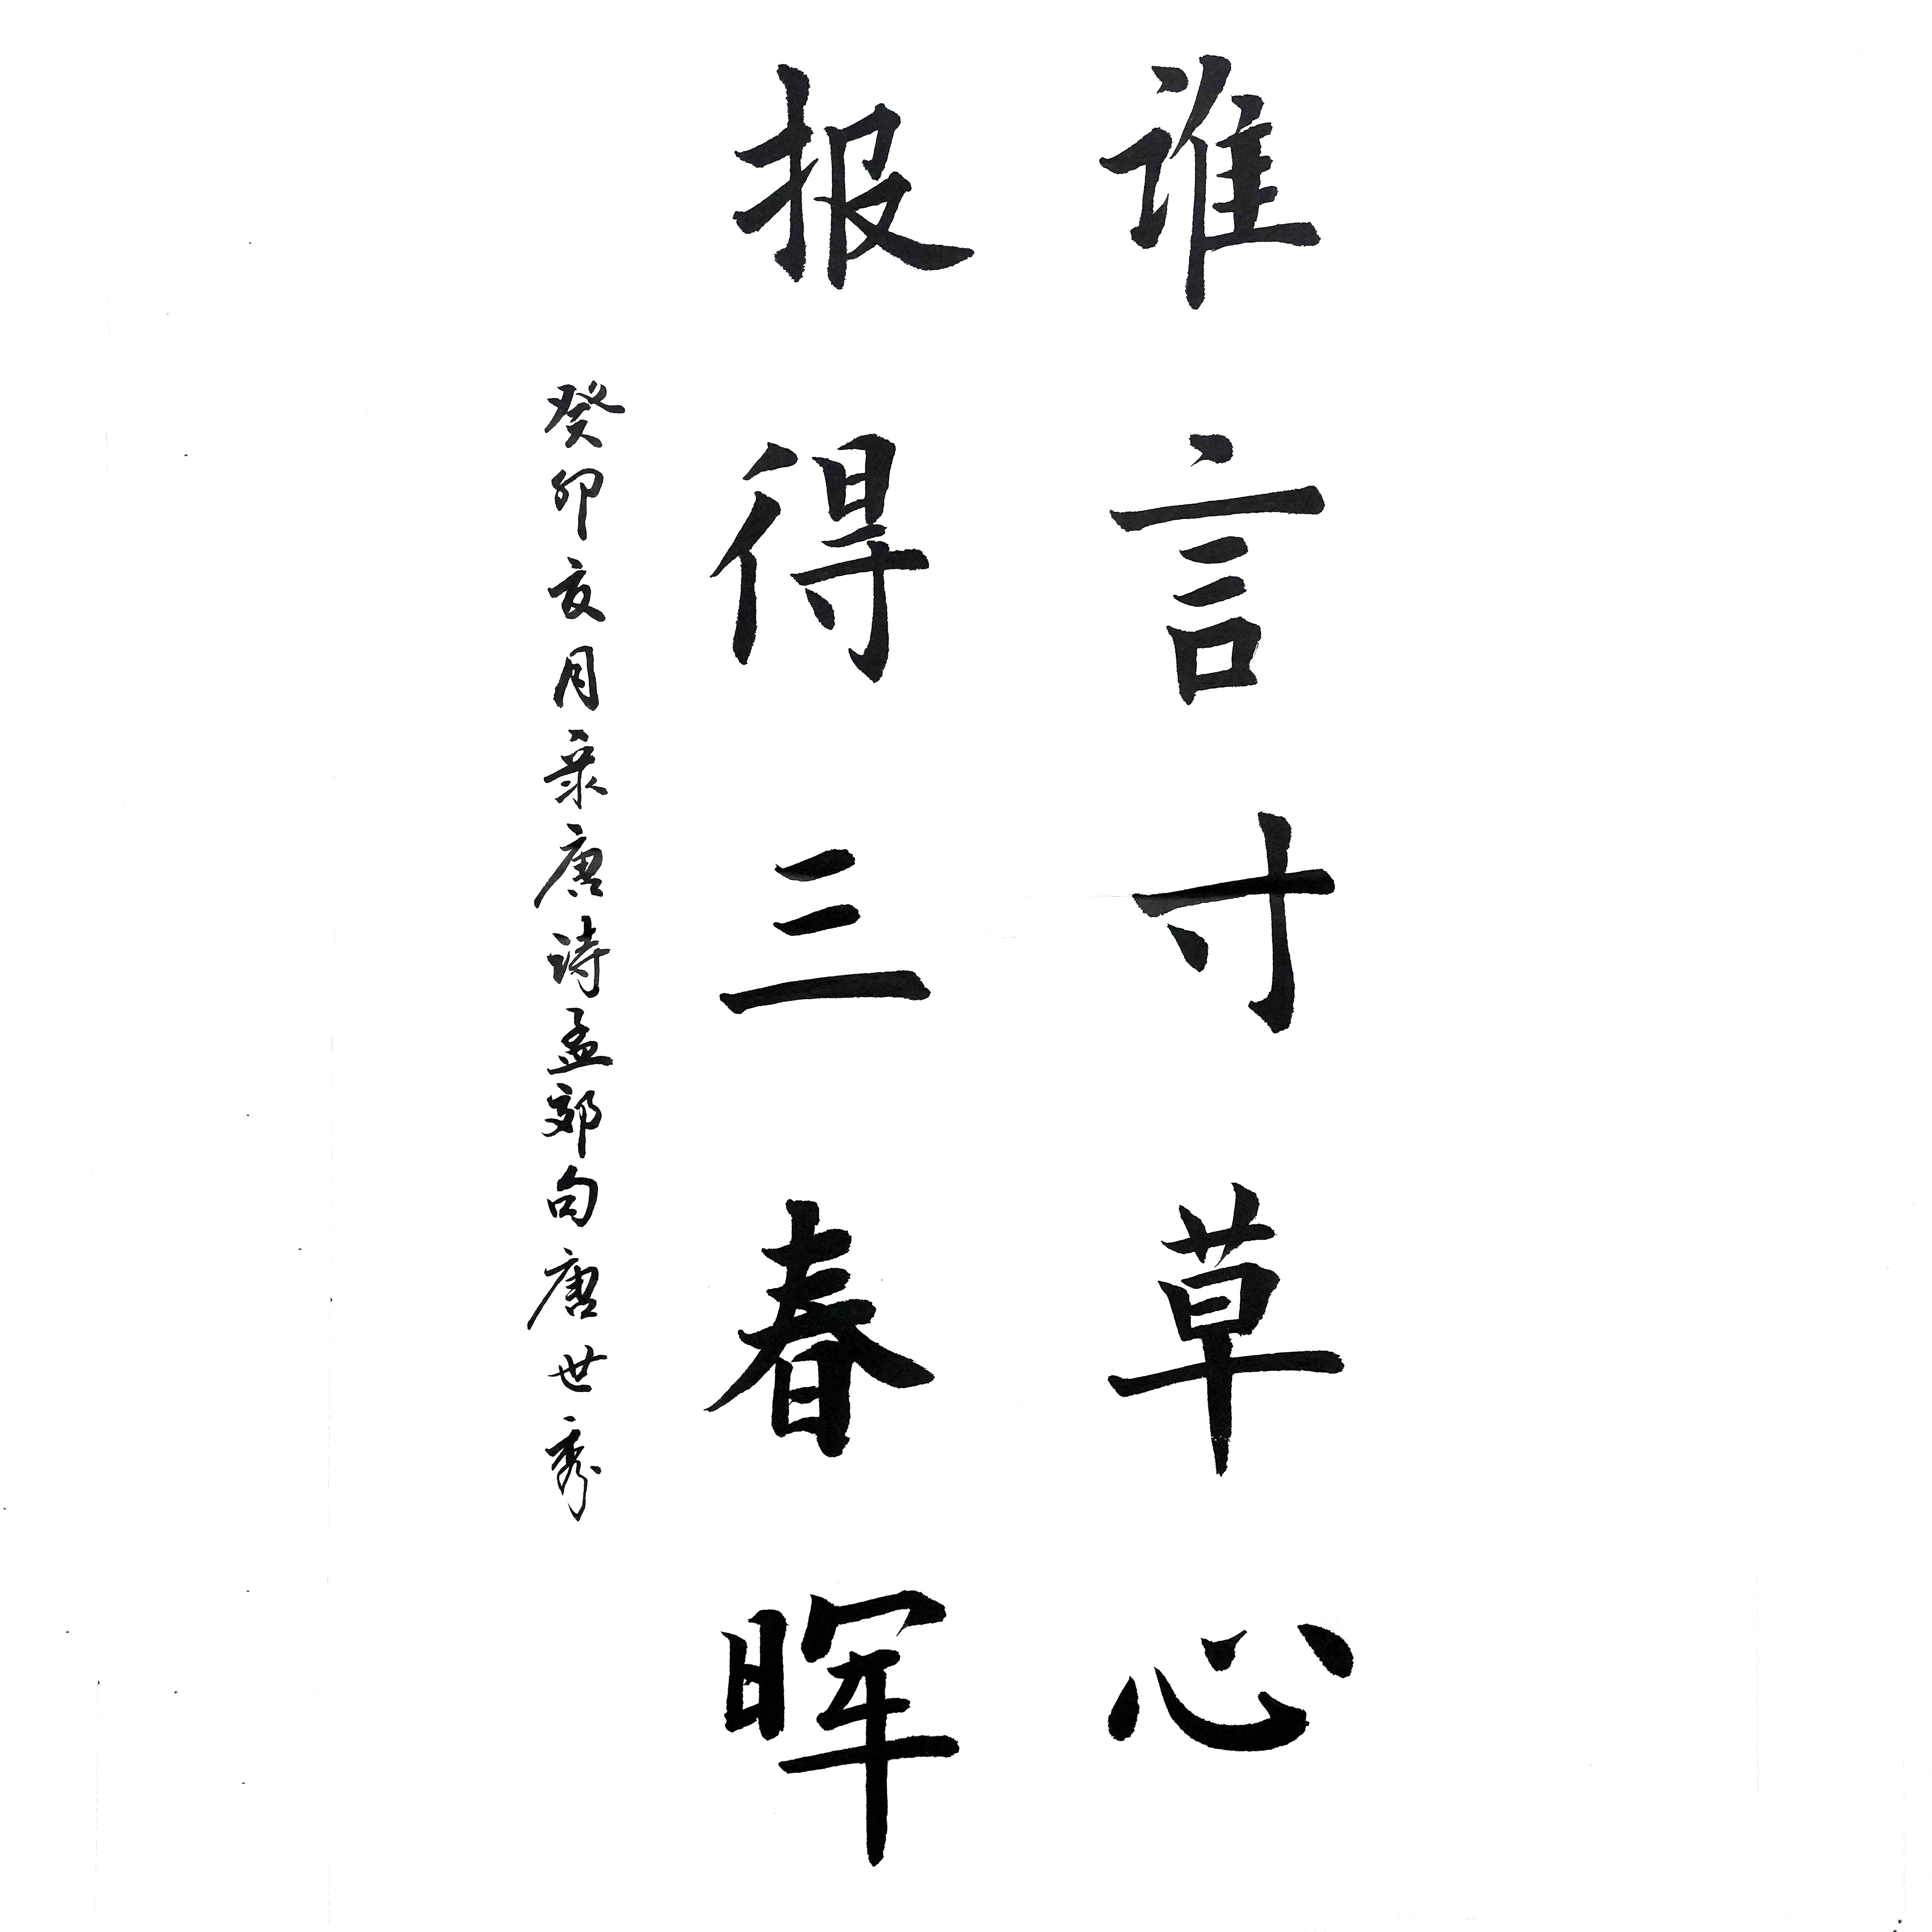 谁言寸草心
报得三春晖
癸卯亥月录唐诗孟郊句唐世秀